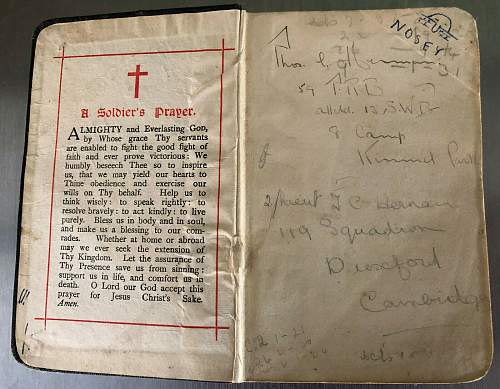 A Soldier's Prayer.
ALMIGHTY and Everlasting GOD,
by Whose grace Thy servants
are enabled to fight the good fight of
faith and ever prove victorious: We
humbly beseech Thee so to inspire
us, that we may yield our hearts to
Thine obedience and exercise our
wills on Thy behalf. Help us to
think wisely: to speak rightly: to
resolve bravely: to act kindly: to live
purely. Bless us in body and in soul,
and make us a blessing to our com-
rades. Whether at home or abroad
may we ever seek the extension of
Thy Kingdom. Let the assurance of
Thy Presence save us from sinning:
support us in life, and comfort us in
death. O Lord our God accept this
prayer for Jesus Christ's Sake.
Amen.
NOSEY
Thos.
59 T.R.B
attchd. 13 S.W.B
8 Camp
Kinmel Park
2/Lieut
119 Squadron
Duxford
Cambridge